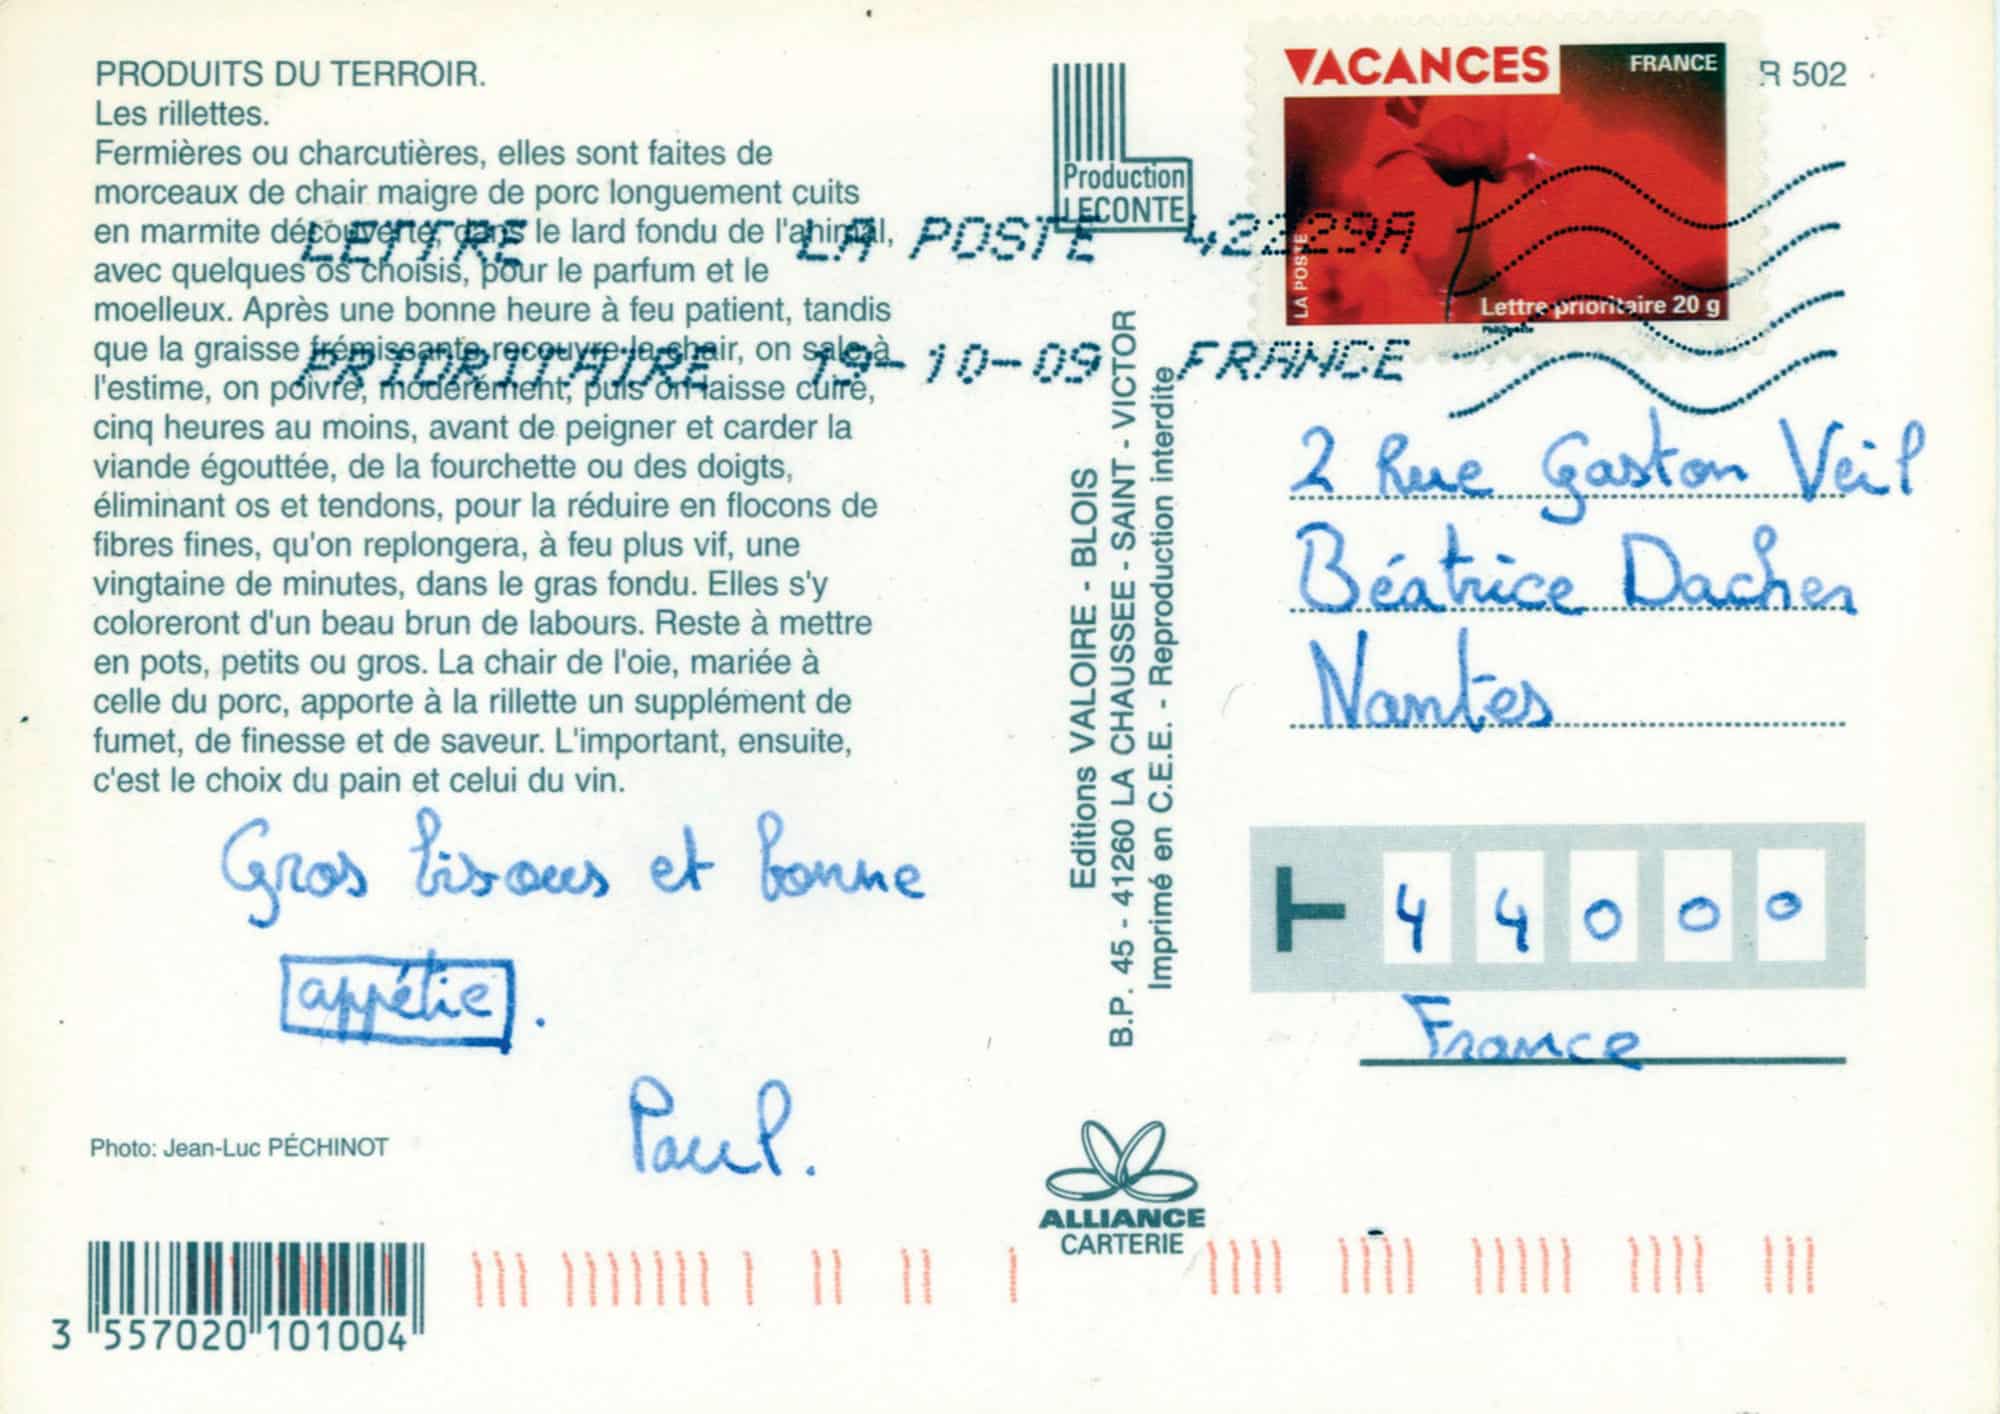 PRODUITS DU TERROIR.
Les rillettes.
Fermières ou charcutières, elles sont faites de
morceaux de chair maigre de porc longuement cuits
en marmite découverte, dans le lard fondu de l'animal,
avec quelques os choisis, pour le parfum et le
moelleux. Après une bonne heure à feu patient, tandis
que la graisse frémissante recouvre la chair, on sale à
l'estime, on poivre, modérément, puis on laisse cuire,
cinq heures au moins, avant de peigner et carder la
viande égouttée, de la fourchette ou des doigts,
éliminant os et tendons, pour la réduire en flocons de
fibres fines, qu'on replongera, à feu plus vif, une
vingtaine de minutes, dans le gras fondu. Elles s'y
coloreront d'un beau brun de labours. Reste à mettre
en pots, petits ou gros. La chair de l'oie, mariée à
celle du porc, apporte à la rillette un supplément de
fumet, de finesse et de saveur. L'important, ensuite,
c'est le choix du pain et celui du vin.
Gros bisous et bonne
appétie.
Paul.
Photo: Jean-Luc PÉCHINOT
3 557020 101004
LETTRE LA POSTE 42229A
PRIORITAIRE 19-10-09 FRANCE
Production
LECONTE
Editions VALOIRE - BLOIS
B.P. 45 - 41260 LA CHAUSSEE - SAINT - VICTOR
Imprimé en C.E.E. - Reproduction interdite
ALLIANCE
CARTERIE
VACANCES
FRANCE
LA POSTE
Lettre prioritaire 20 g
R 502
2 Rue Gaston Veil
Béatrice Dacher
Nantes
T 44000
France